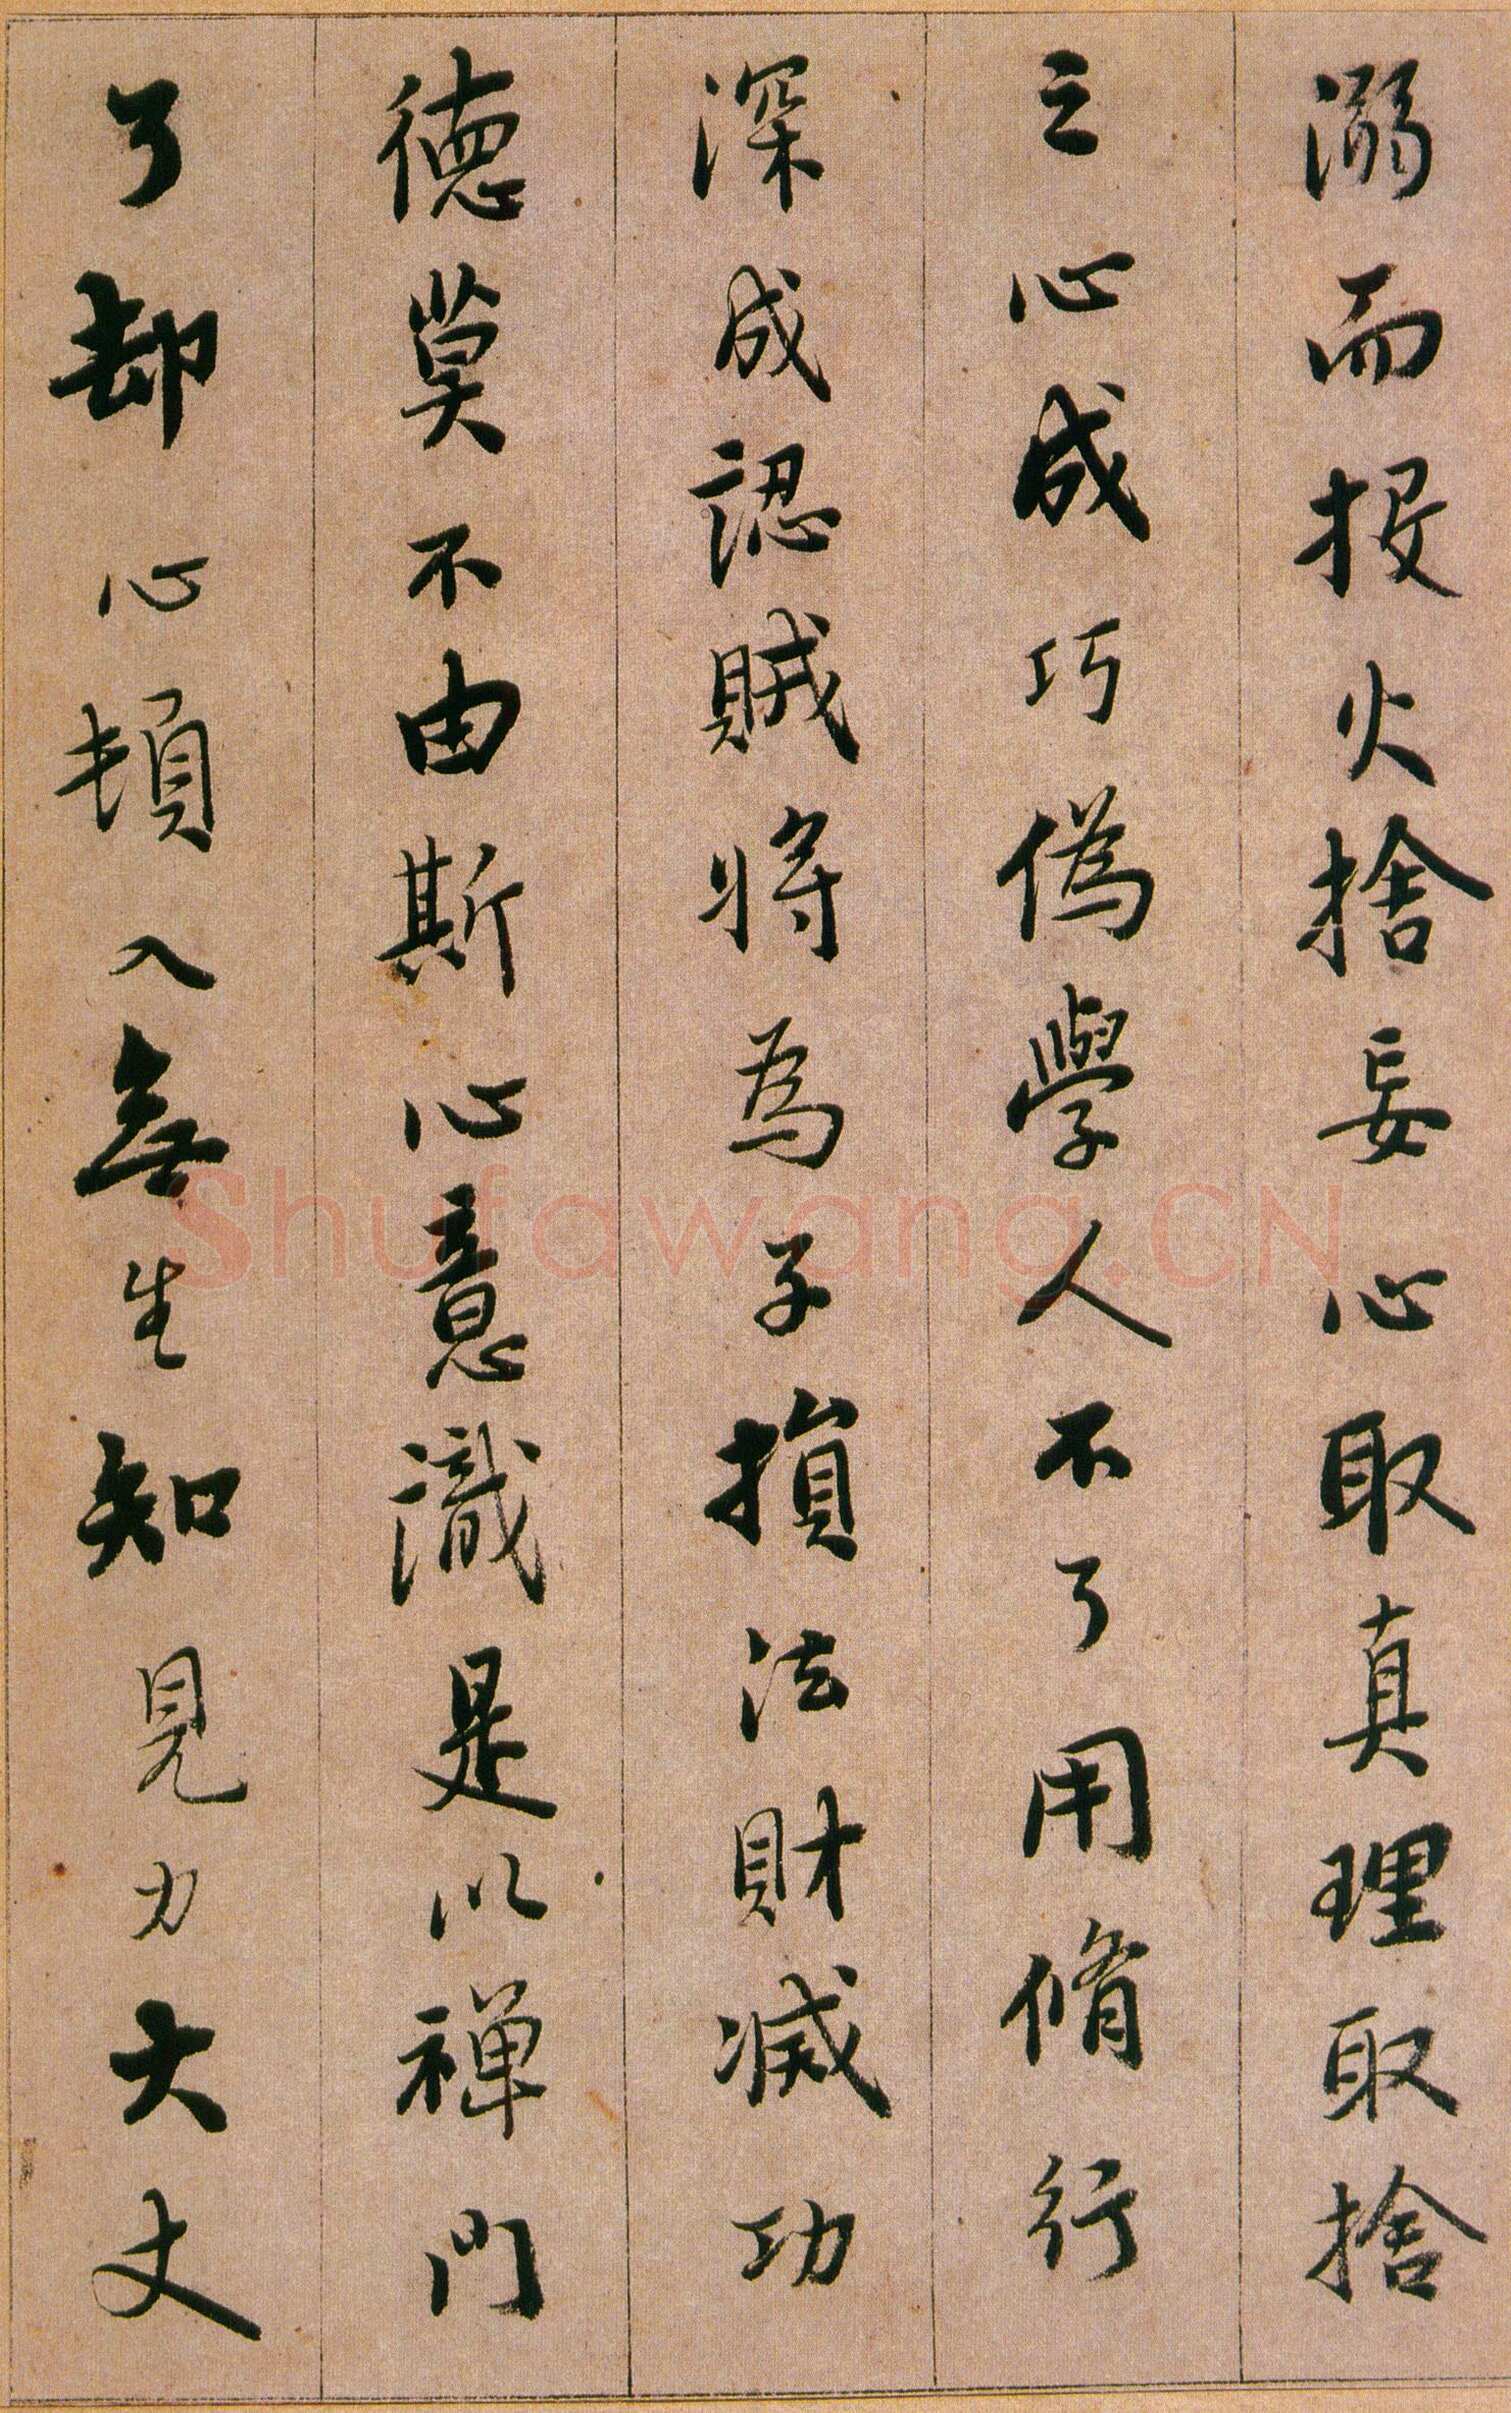 溺而投火捨妄心取真理取捨
之心成巧偽學人不了用脩行
深成認賊將為子損法財滅功
德莫不由斯心意識是以禪門
了却心頓入無生知見力大丈
Shufawang.CN